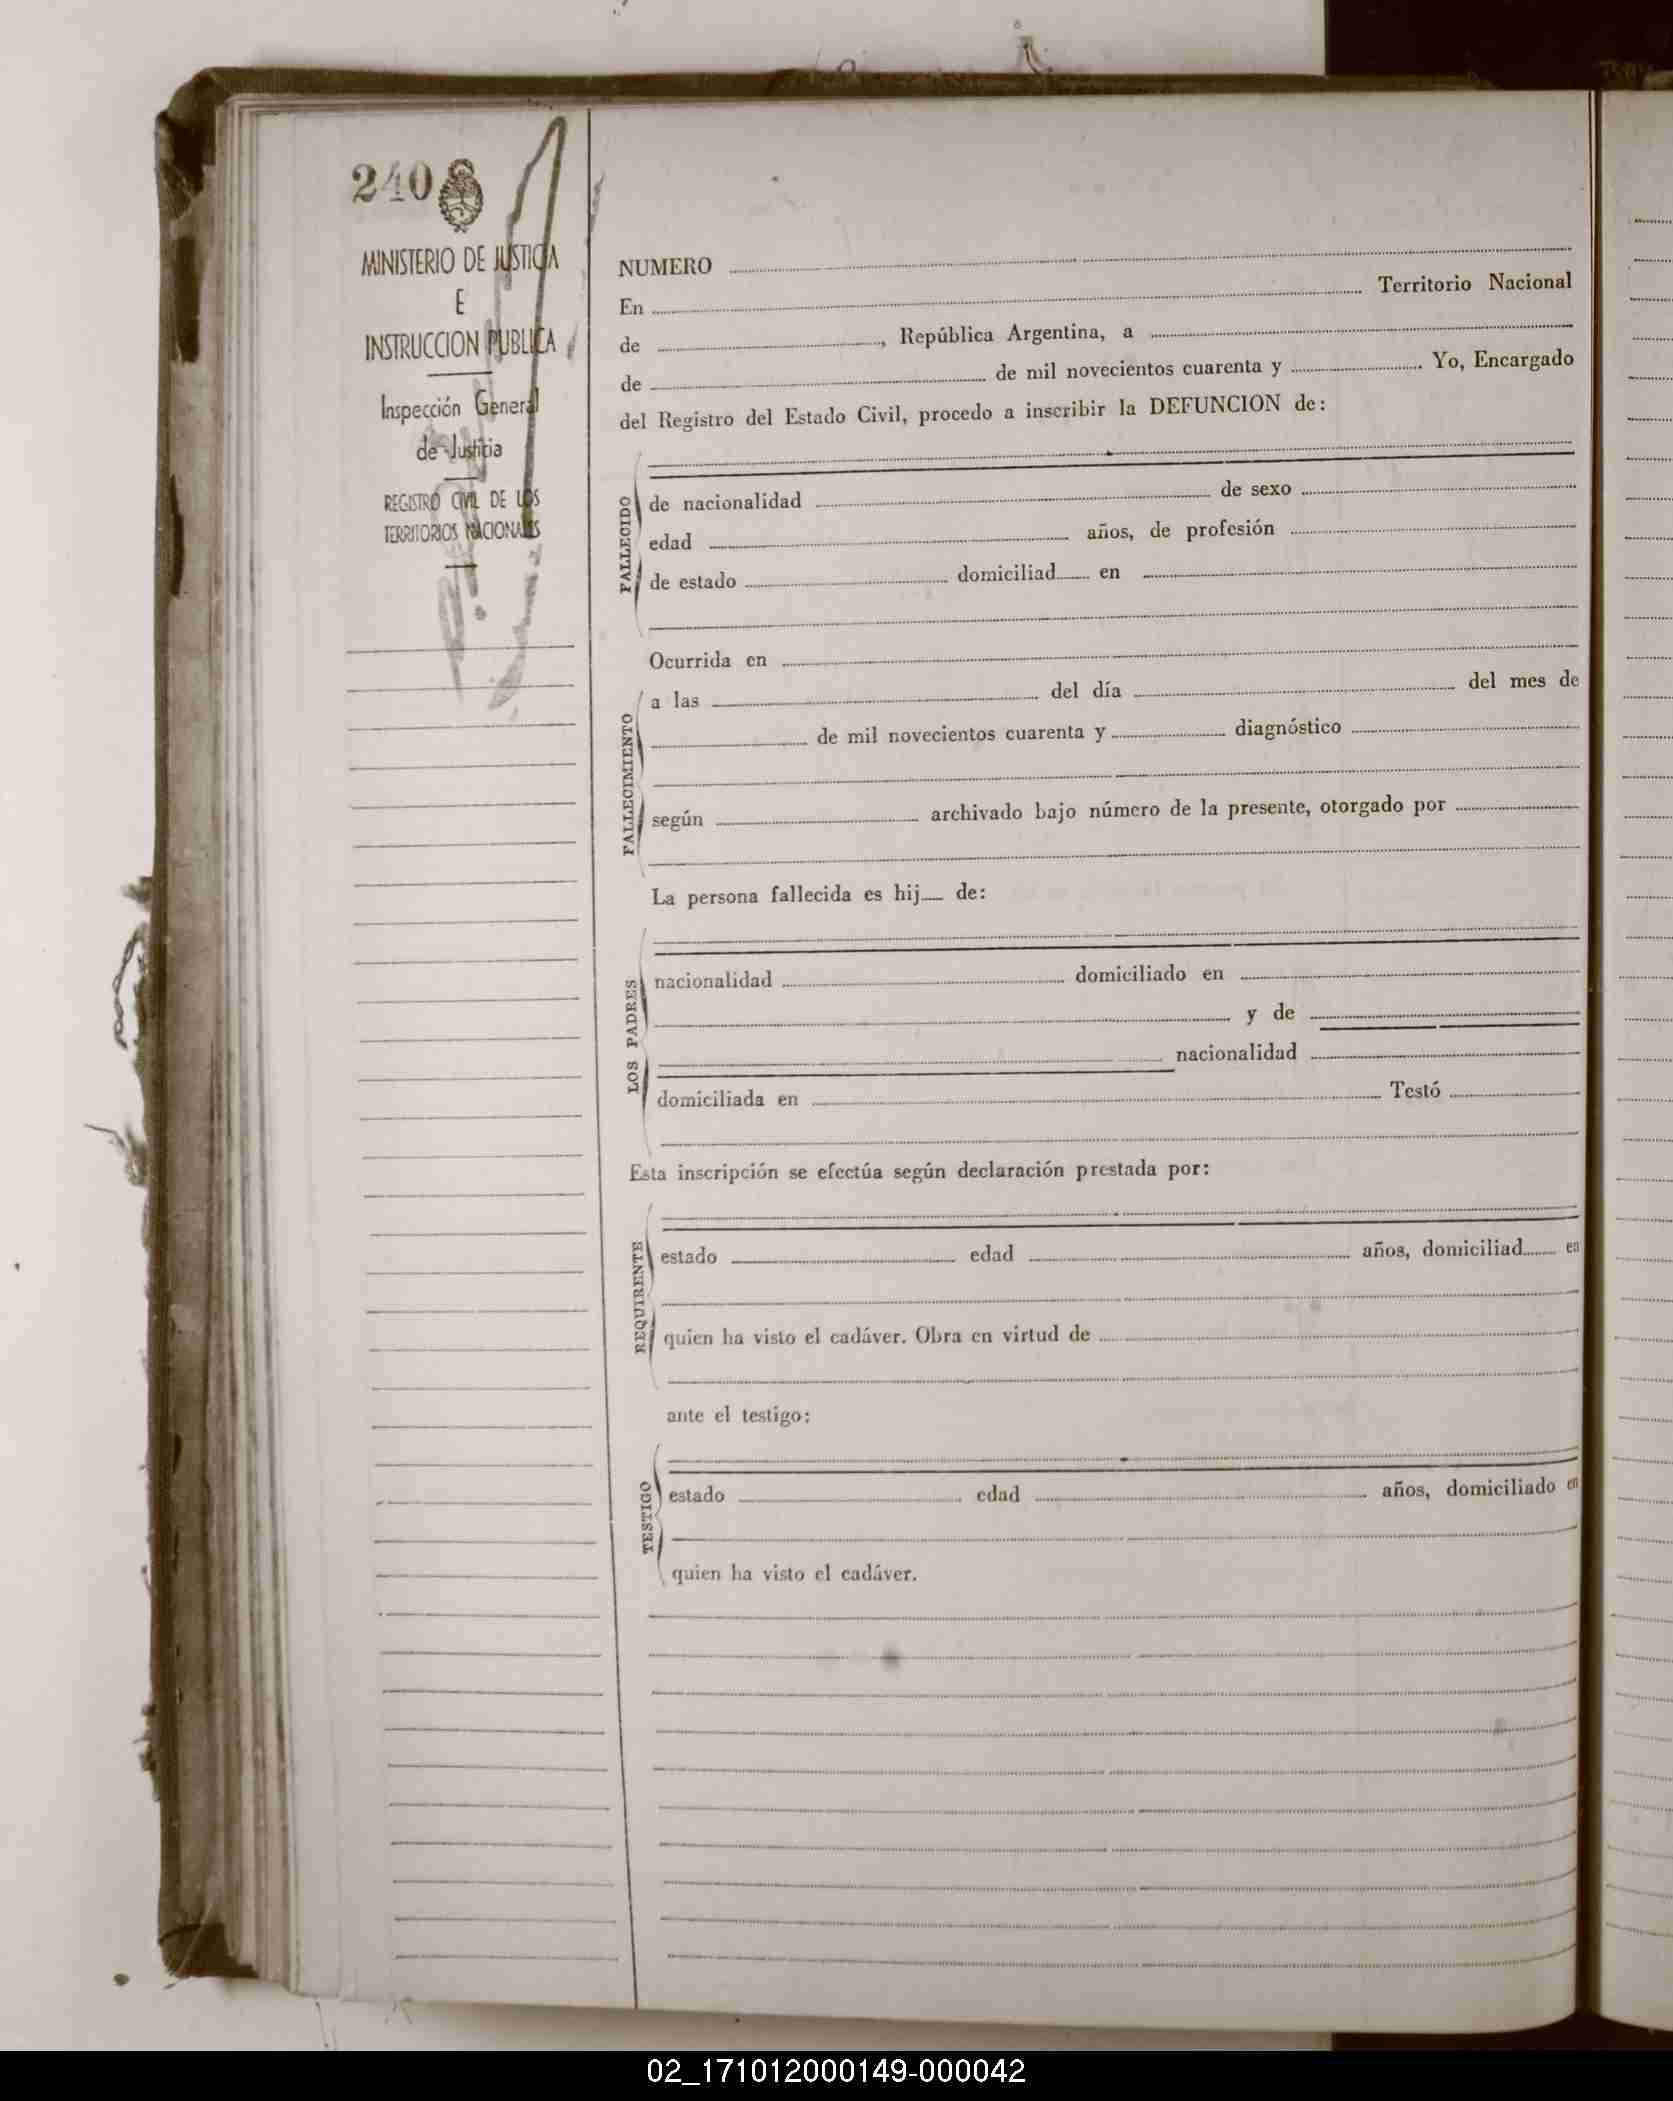 240
MINISTERIO DE JUSTICIA
E
INSTRUCCION PUBLICA
Inspección General
de Justicia
REGISTRO CIVIL DE LOS
TERRITORIOS NACIONALES
NUMERO
En Territorio Nacional
de , República Argentina, a
de de mil novecientos cuarenta y Yo, Encargado
del Registro del Estado Civil, procedo a inscribir la DEFUNCION de:
FALLECIDO
de nacionalidad de sexo
edad años, de profesión
de estado domiciliad en
Ocurrida en
FALLECIMIENTO
a las del día del mes de
de mil novecientos cuarenta y diagnóstico
según archivado bajo número de la presente, otorgado por
La persona fallecida es hij de:
LOS PADRES
nacionalidad domiciliado en
y de
nacionalidad
domiciliada en Testó
Esta inscripción se efectúa según declaración prestada por:
REQUIRENTE
estado edad años, domiciliad en
quien ha visto el cadáver. Obra en virtud de
ante el testigo:
TESTIGO
estado edad años, domiciliado en
quien ha visto el cadáver.
02_171012000149-000042